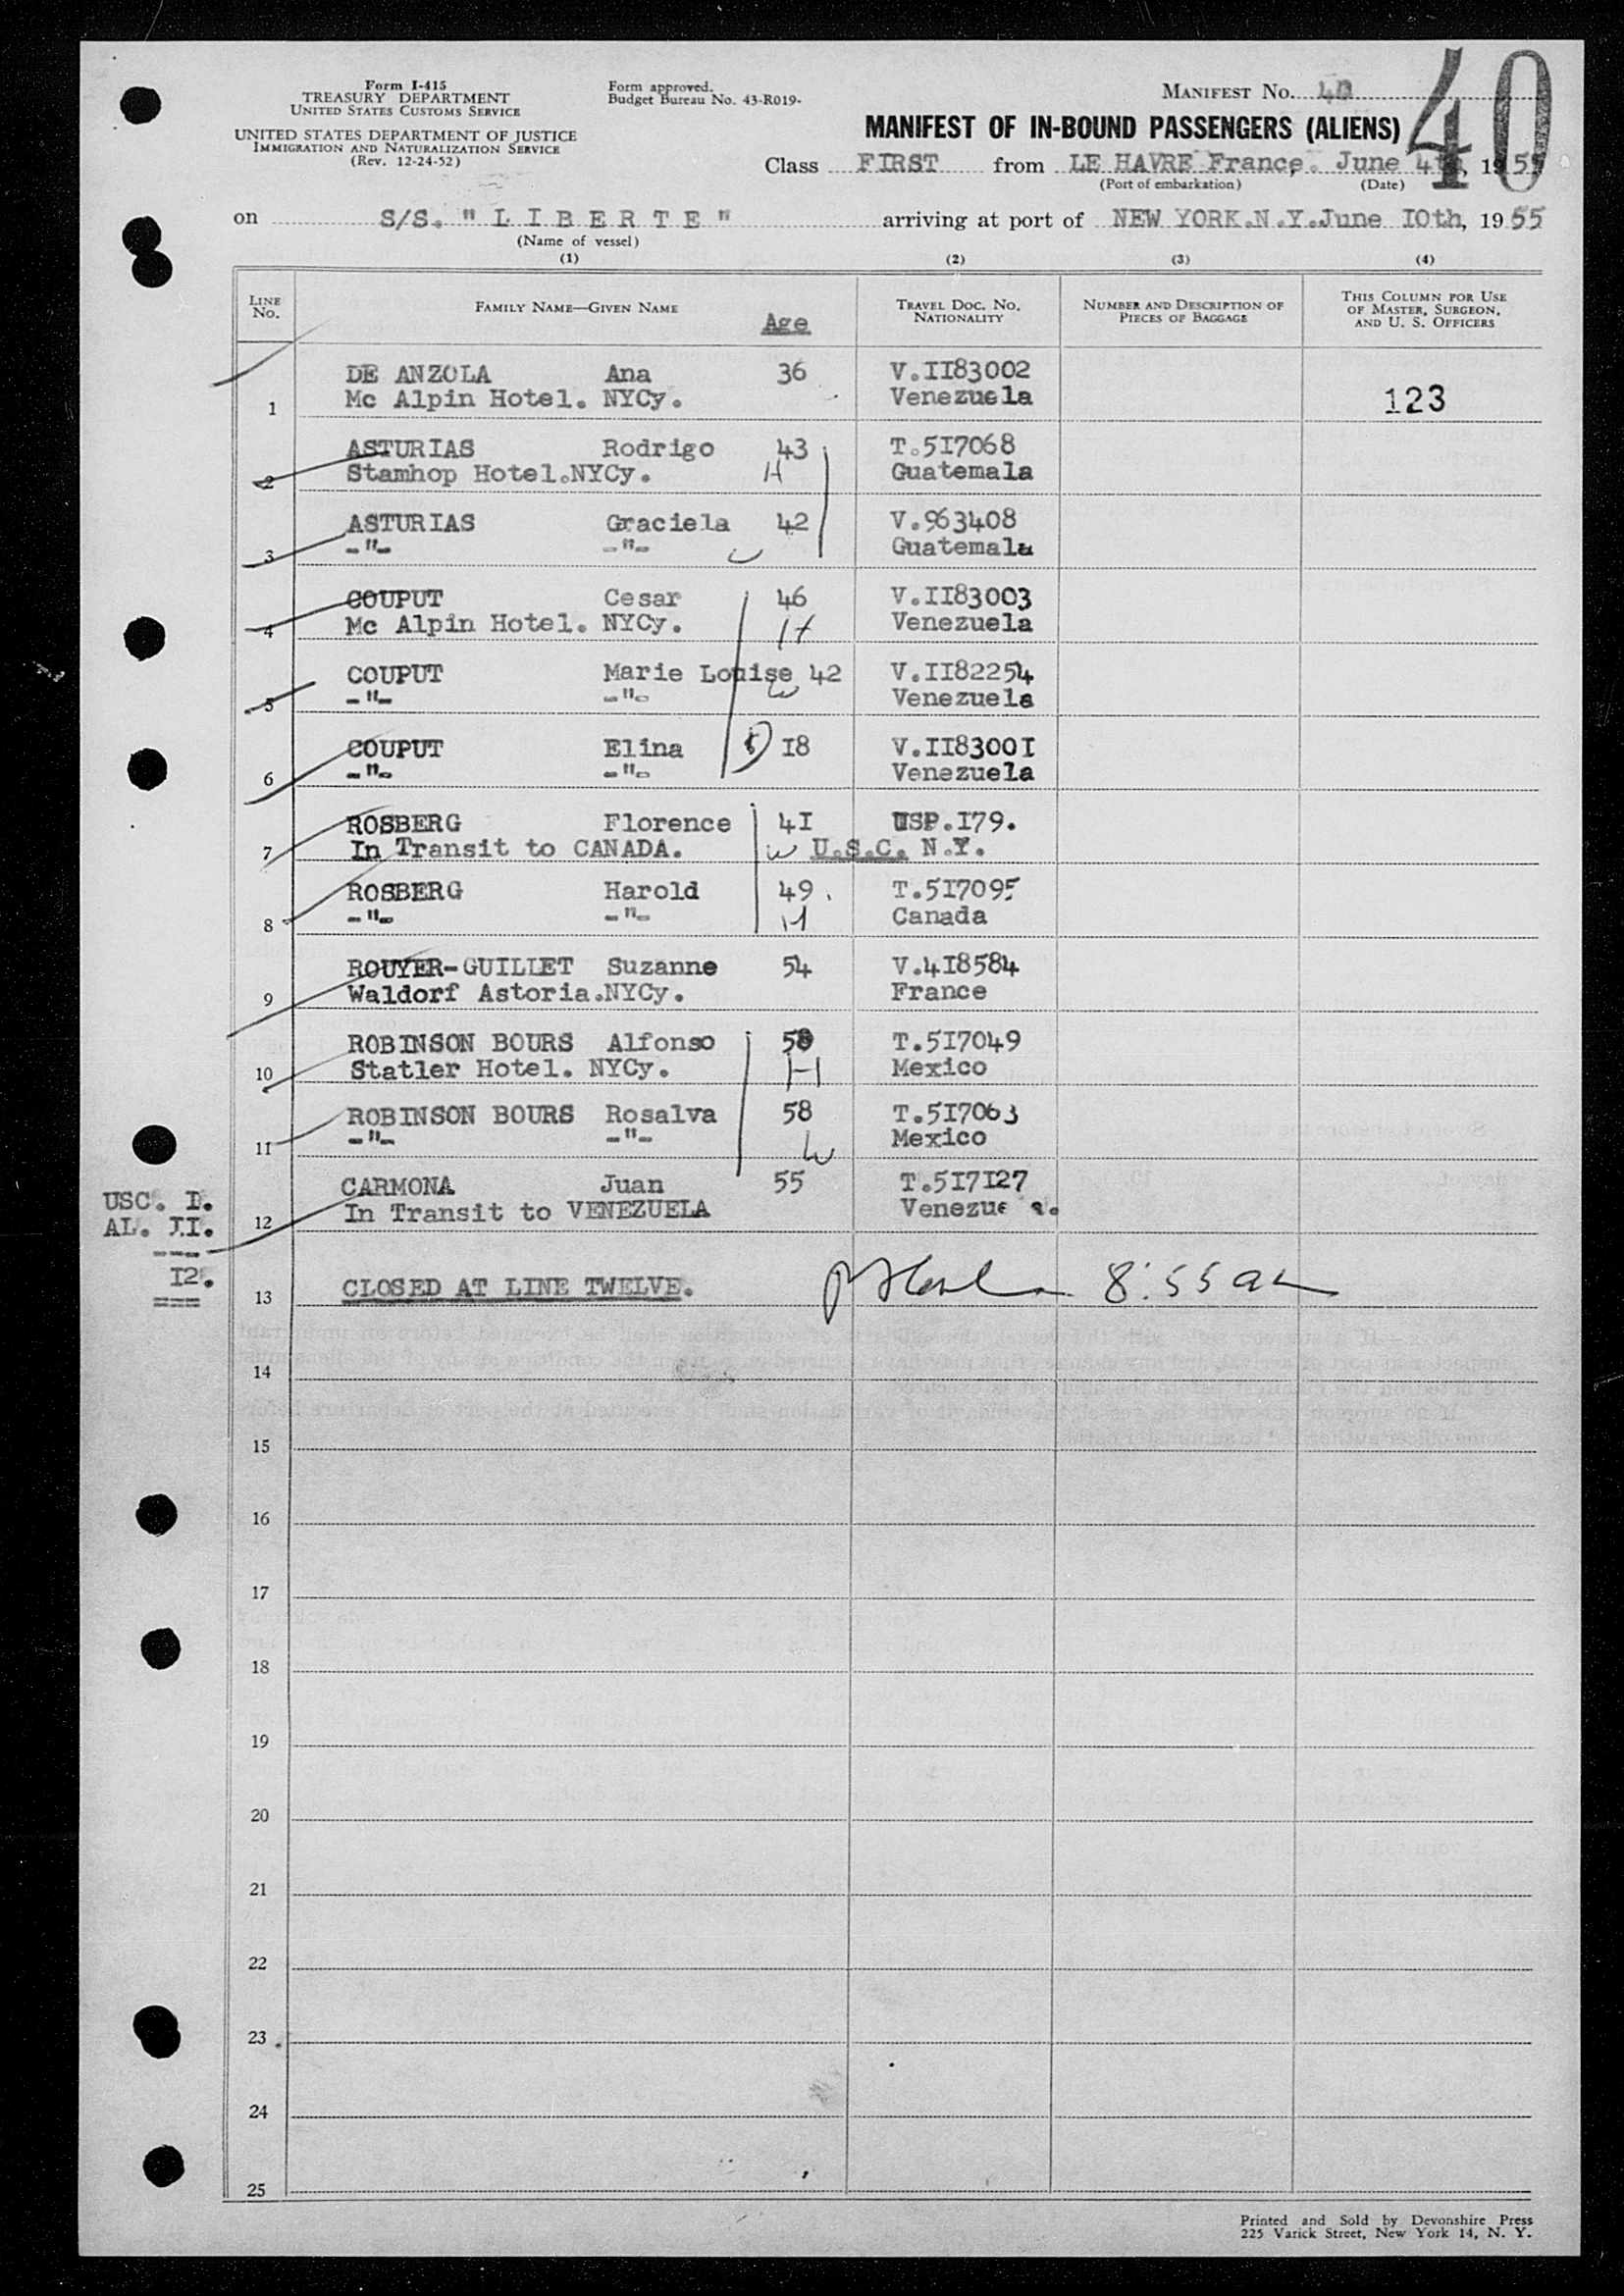 Form I-415
TREASURY DEPARTMENT
UNITED STATES CUSTOMS SERVICE
UNITED STATES DEPARTMENT OF JUSTICE
IMMIGRATION AND NATURALIZATION SERVICE
(Rev. 12-24-52)
Form approved.
Budget Bureau No. 43-R019-
MANIFEST NO. 40
40
MANIFEST OF IN-BOUND PASSENGERS (ALIENS)
Class FIRST from LE HAVRE France. June 4th, 1955
(Port of embarkation) (Date)
on S/S. "LIBERTE" arriving at port of NEW YORK.N.Y.June IOth, 1955
(Name of vessel)
(1) (2) (3) (4)
LINE NO. FAMILY NAME—GIVEN NAME Age TRAVEL DOC. NO. NATIONALITY NUMBER AND DESCRIPTION OF PIECES OF BAGGAGE THIS COLUMN FOR USE OF MASTER, SURGEON, AND U. S. OFFICERS
DE ANZOLA Ana 36 V.II83002
1 Mc Alpin Hotel. NYCy. Venezuela 123
ASTURIAS Rodrigo 43 T.5I7068
2 Stamhop Hotel.NYCy. H Guatemala
ASTURIAS Graciela 42 V.963408
3 -"- -"- W Guatemala
COUPUT Cesar 46 V.II83003
4 Mc Alpin Hotel. NYCy. H Venezuela
COUPUT Marie Louise 42 V.II82254
5 -"- -"- W Venezuela
COUPUT Elina I8 V.II8300I
6 -"- -"- Venezuela
ROSBERG Florence 4I USP.I79.
7 In Transit to CANADA. W U.S.C. N.Y.
ROSBERG Harold 49. T.5I7095
8 -"- -"- H Canada
ROUYER-GUILLET Suzanne 54 V.4I8584
9 Waldorf Astoria.NYCy. France
ROBINSON BOURS Alfonso T.5I7049
10 Statler Hotel. NYCy. H Mexico
ROBINSON BOURS Rosalva 58 T.5I7063
11 -"- -"- W Mexico
CARMONA Juan 55 T.5I7I27
12 In Transit to VENEZUELA
USC. I.
AL. II.
---
I2.
===
13 CLOSED AT LINE TWELVE. 8:55 am
14
15
16
17
18
19
20
21
22
23
24
25
Printed and Sold by Devonshire Press
225 Varick Street, New York 14, N. Y.